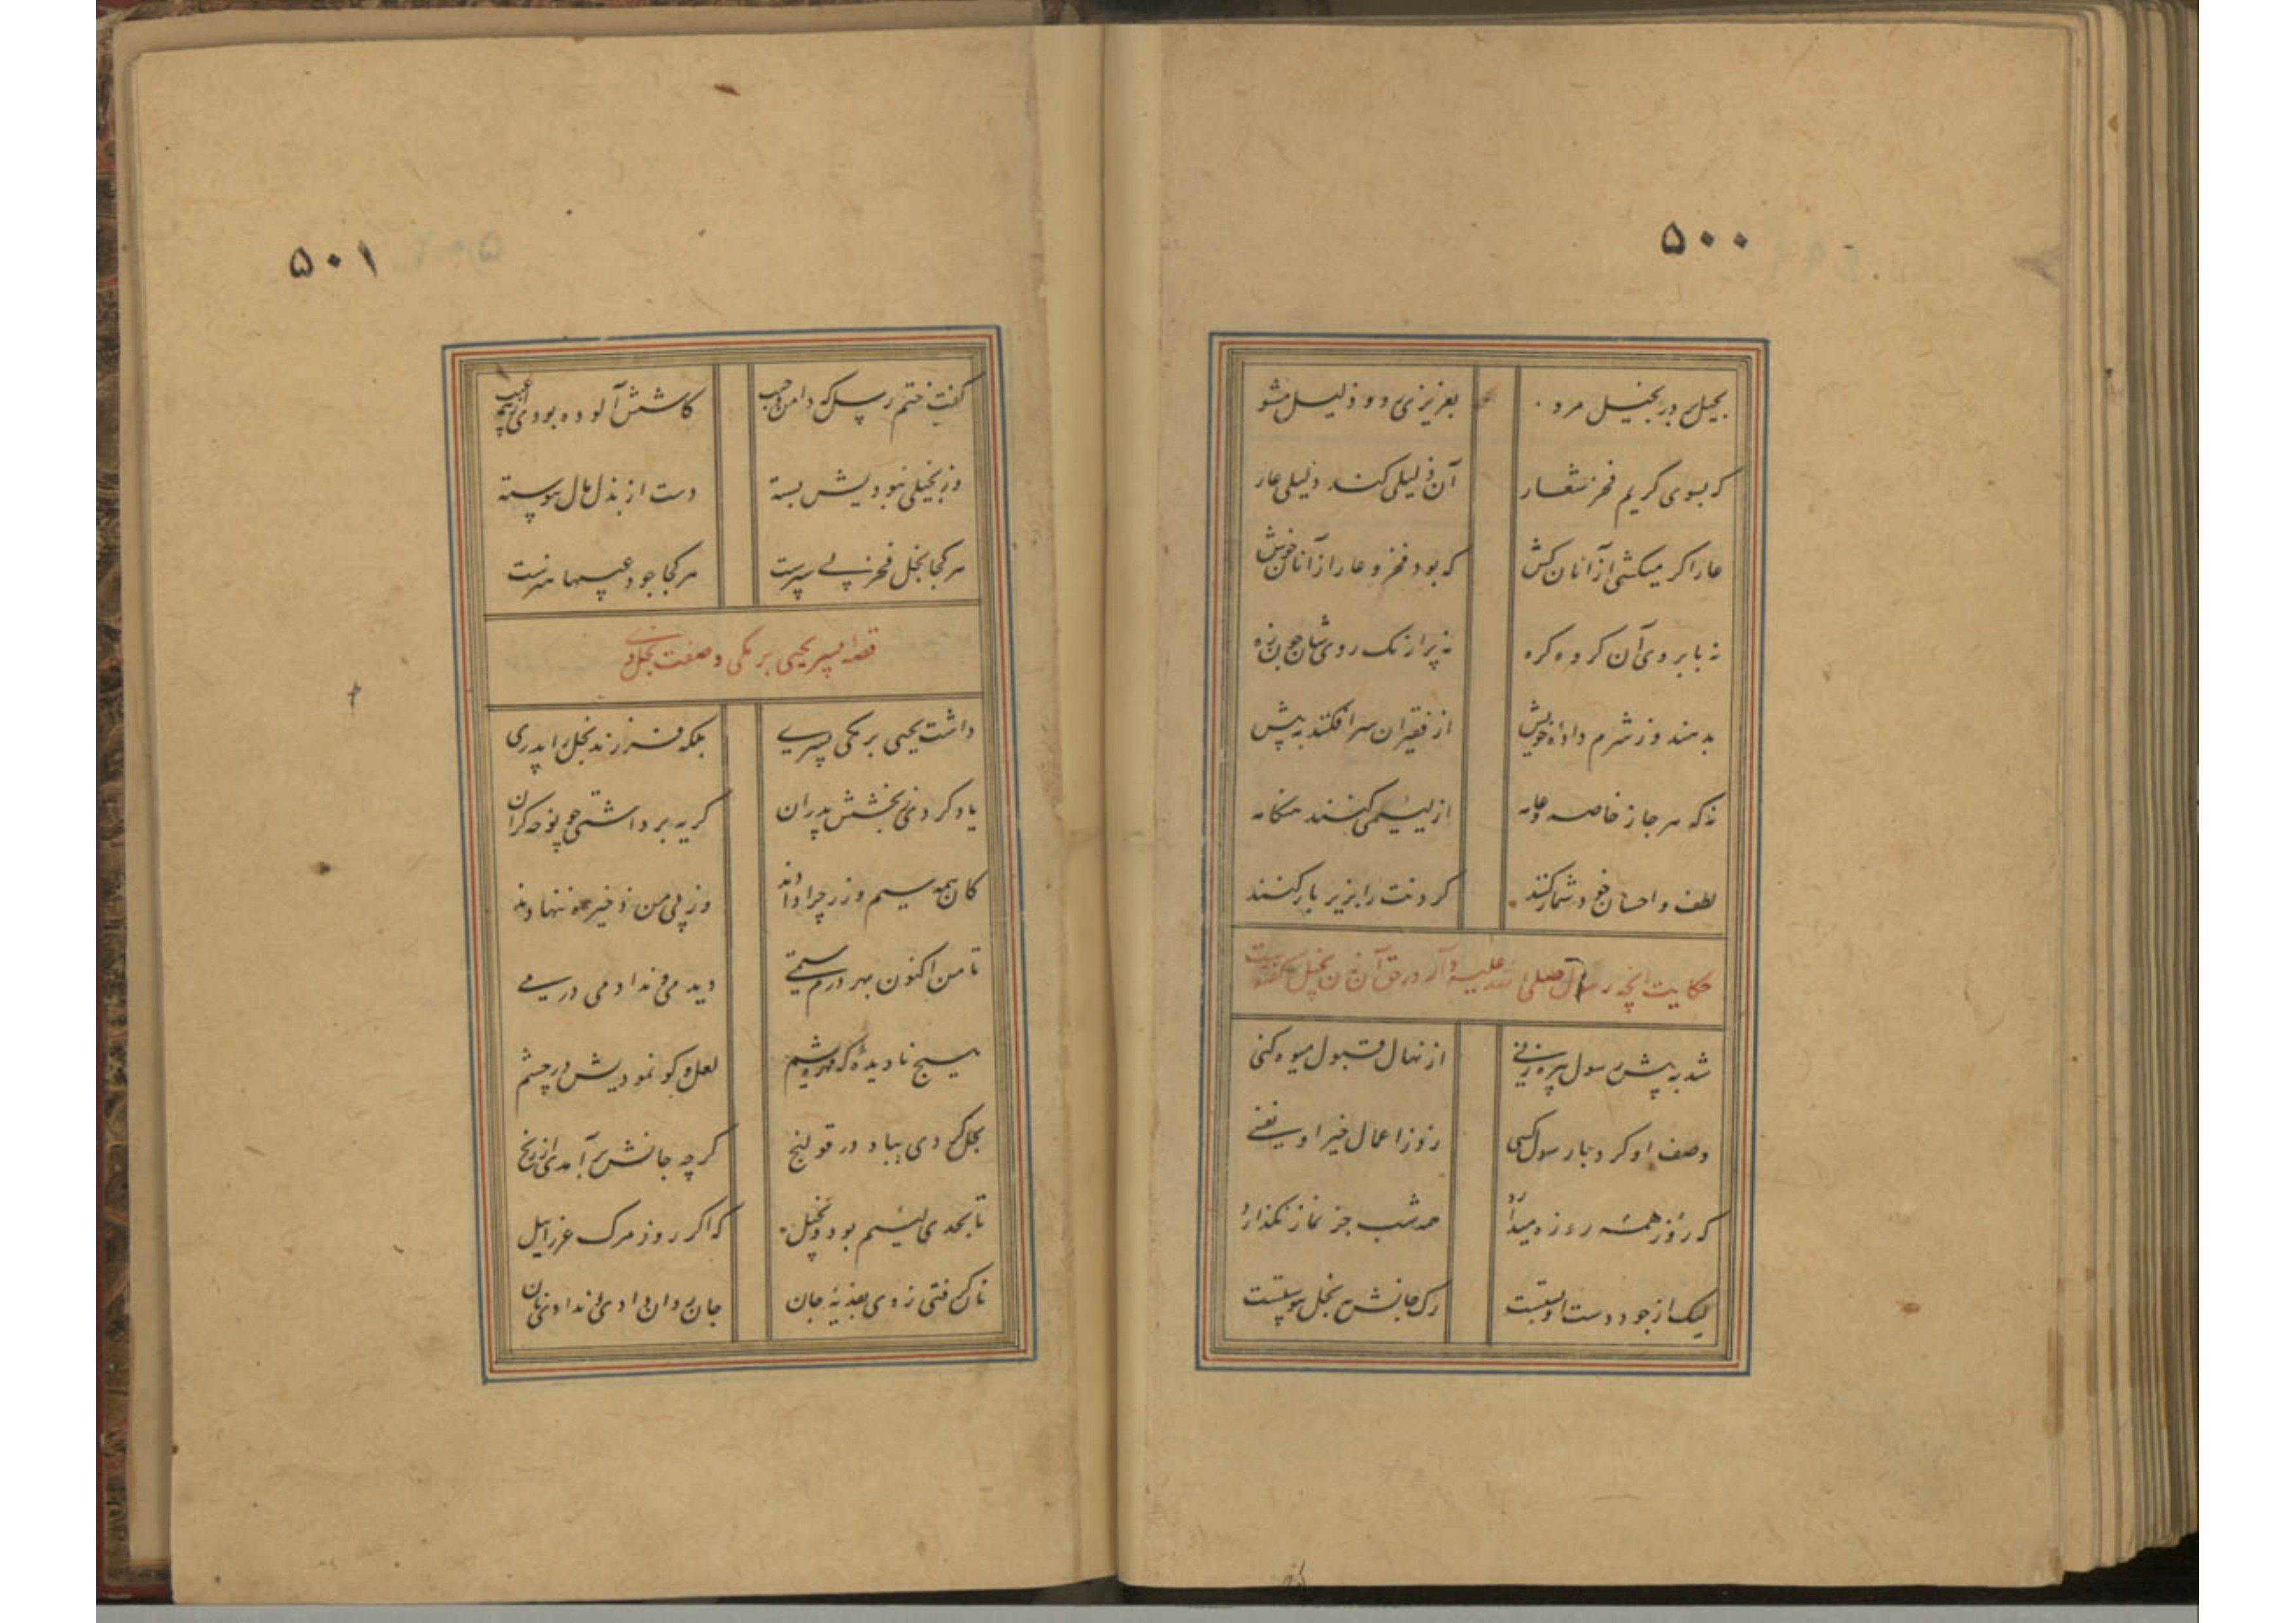 ۵۰۰
بحیل بر در بخیل مرو بعزیزی رو و ذلیل مشو
کر بسوی کریم فخر شعار آن ذلیلی کند ذلیلی عار
عار اکر میکشی از آنان کش که بود فخر و عار از آنان خوش
نه بابروی آن کروه کره نه پر از نک روی شان
بدهند و ز شرم داده خویش از فقیران سر افکنند به پیش
نه که هر جا ز خاصه و عامه از لئیمی کنند هنکامه
لطف و احسان خود شمار کنند کردنت را بزیر بار کنند
حکایت آنچه رسول صلی الله علیه و آله در حق آن زن بخیل گفته است
شد به پیش رسول پیره زنی از نهال قبول میوه کنی
وصف او کرد با رسول کسی زد ز اعمال خیر او نفسی
که روز همه روزه میدارد همه شب جز نماز نکذارد
لیک از جود دست او بستست رک جانش ببخل پیوستست
۵۰۱
گفت ختم رسل که دامن و جیب کاشش آلوده بودی از همه عیب
وز بخیلی نبودیش بسته دست از بذل مال پیوسته
هر کجا بخل فخر بی سپرست هر کجا جود عیبها هنرست
قصه پسر یحیی برمکی و صفت بخل وی
داشت یحیی برمکی پسری بلکه فرزند بخل را پدری
یاد کردی ز بخشش پدران کریه برداشتی چو نوحه کران
کان همه سیم و زر چرا دادند وز پی من ذخیره ننهادند
تا من اکنون بهر درم ستمی دیدمی و ندادمی درمی
هیچ نادیده لعل و کو نمودیش در چشم
بخل کردی بباد در قولنج کر چه جانش برآمدی از رنج
تا بحدی لئیم بود و بخیل که اکر روز مرک عزرائیل
نان کرفتی ز وی بفدیه جان جان روان دادی و ندادی نان